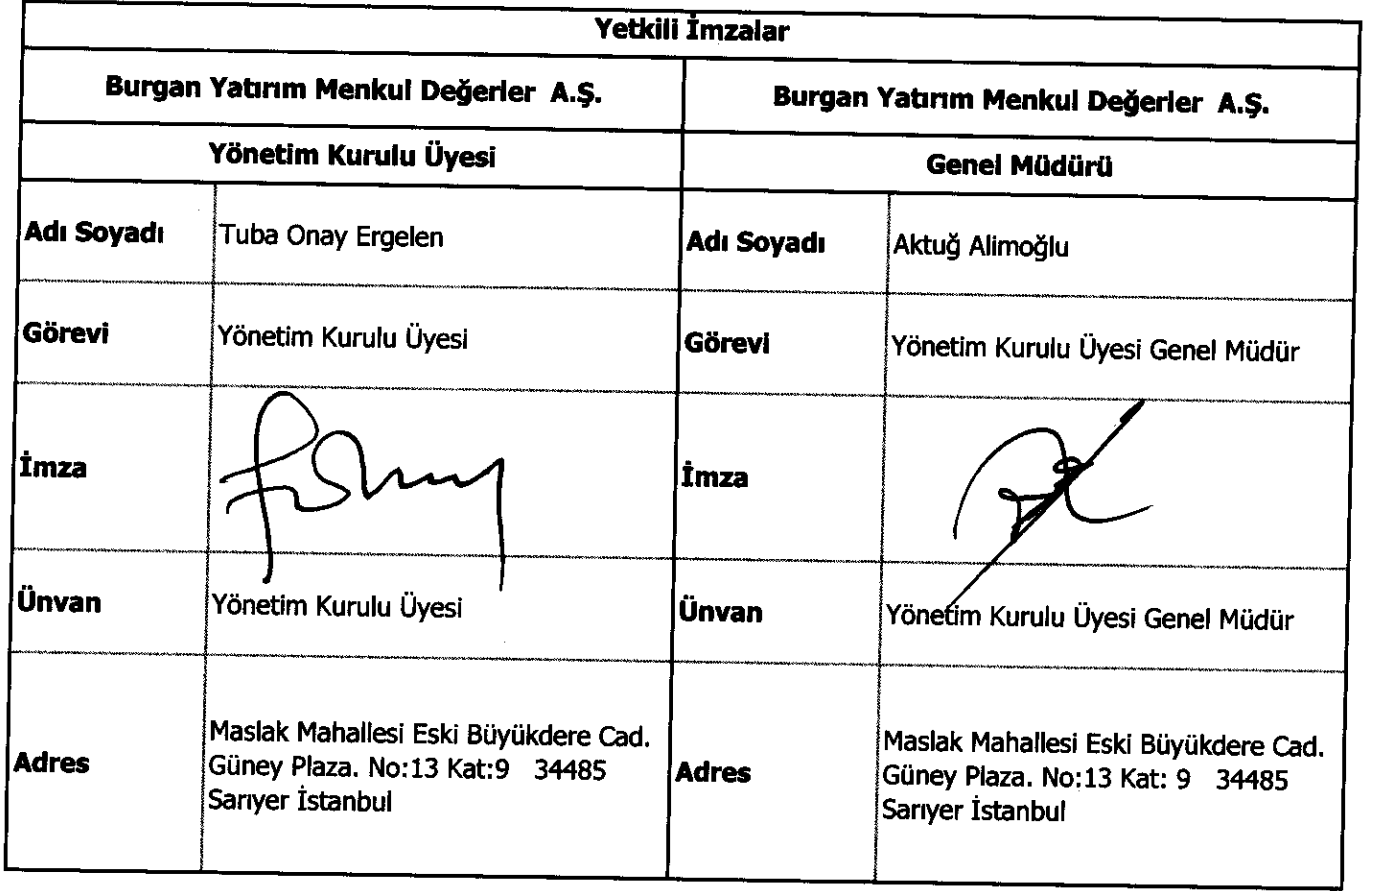 Yetkili İmzalar
Burgan Yatırım Menkul Değerler A.Ş.
Burgan Yatırım Menkul Değerler A.Ş.
Yönetim Kurulu Üyesi
Genel Müdürü
Adı Soyadı
Tuba Onay Ergelen
Adı Soyadı
Aktuğ Alimoğlu
Görevi
Yönetim Kurulu Üyesi
Görevi
Yönetim Kurulu Üyesi Genel Müdür
İmza
İmza
Ünvan
Yönetim Kurulu Üyesi
Ünvan
Yönetim Kurulu Üyesi Genel Müdür
Adres
Maslak Mahallesi Eski Büyükdere Cad.
Güney Plaza. No:13 Kat:9 34485
Sarıyer İstanbul
Adres
Maslak Mahallesi Eski Büyükdere Cad.
Güney Plaza. No:13 Kat: 9 34485
Sarıyer İstanbul